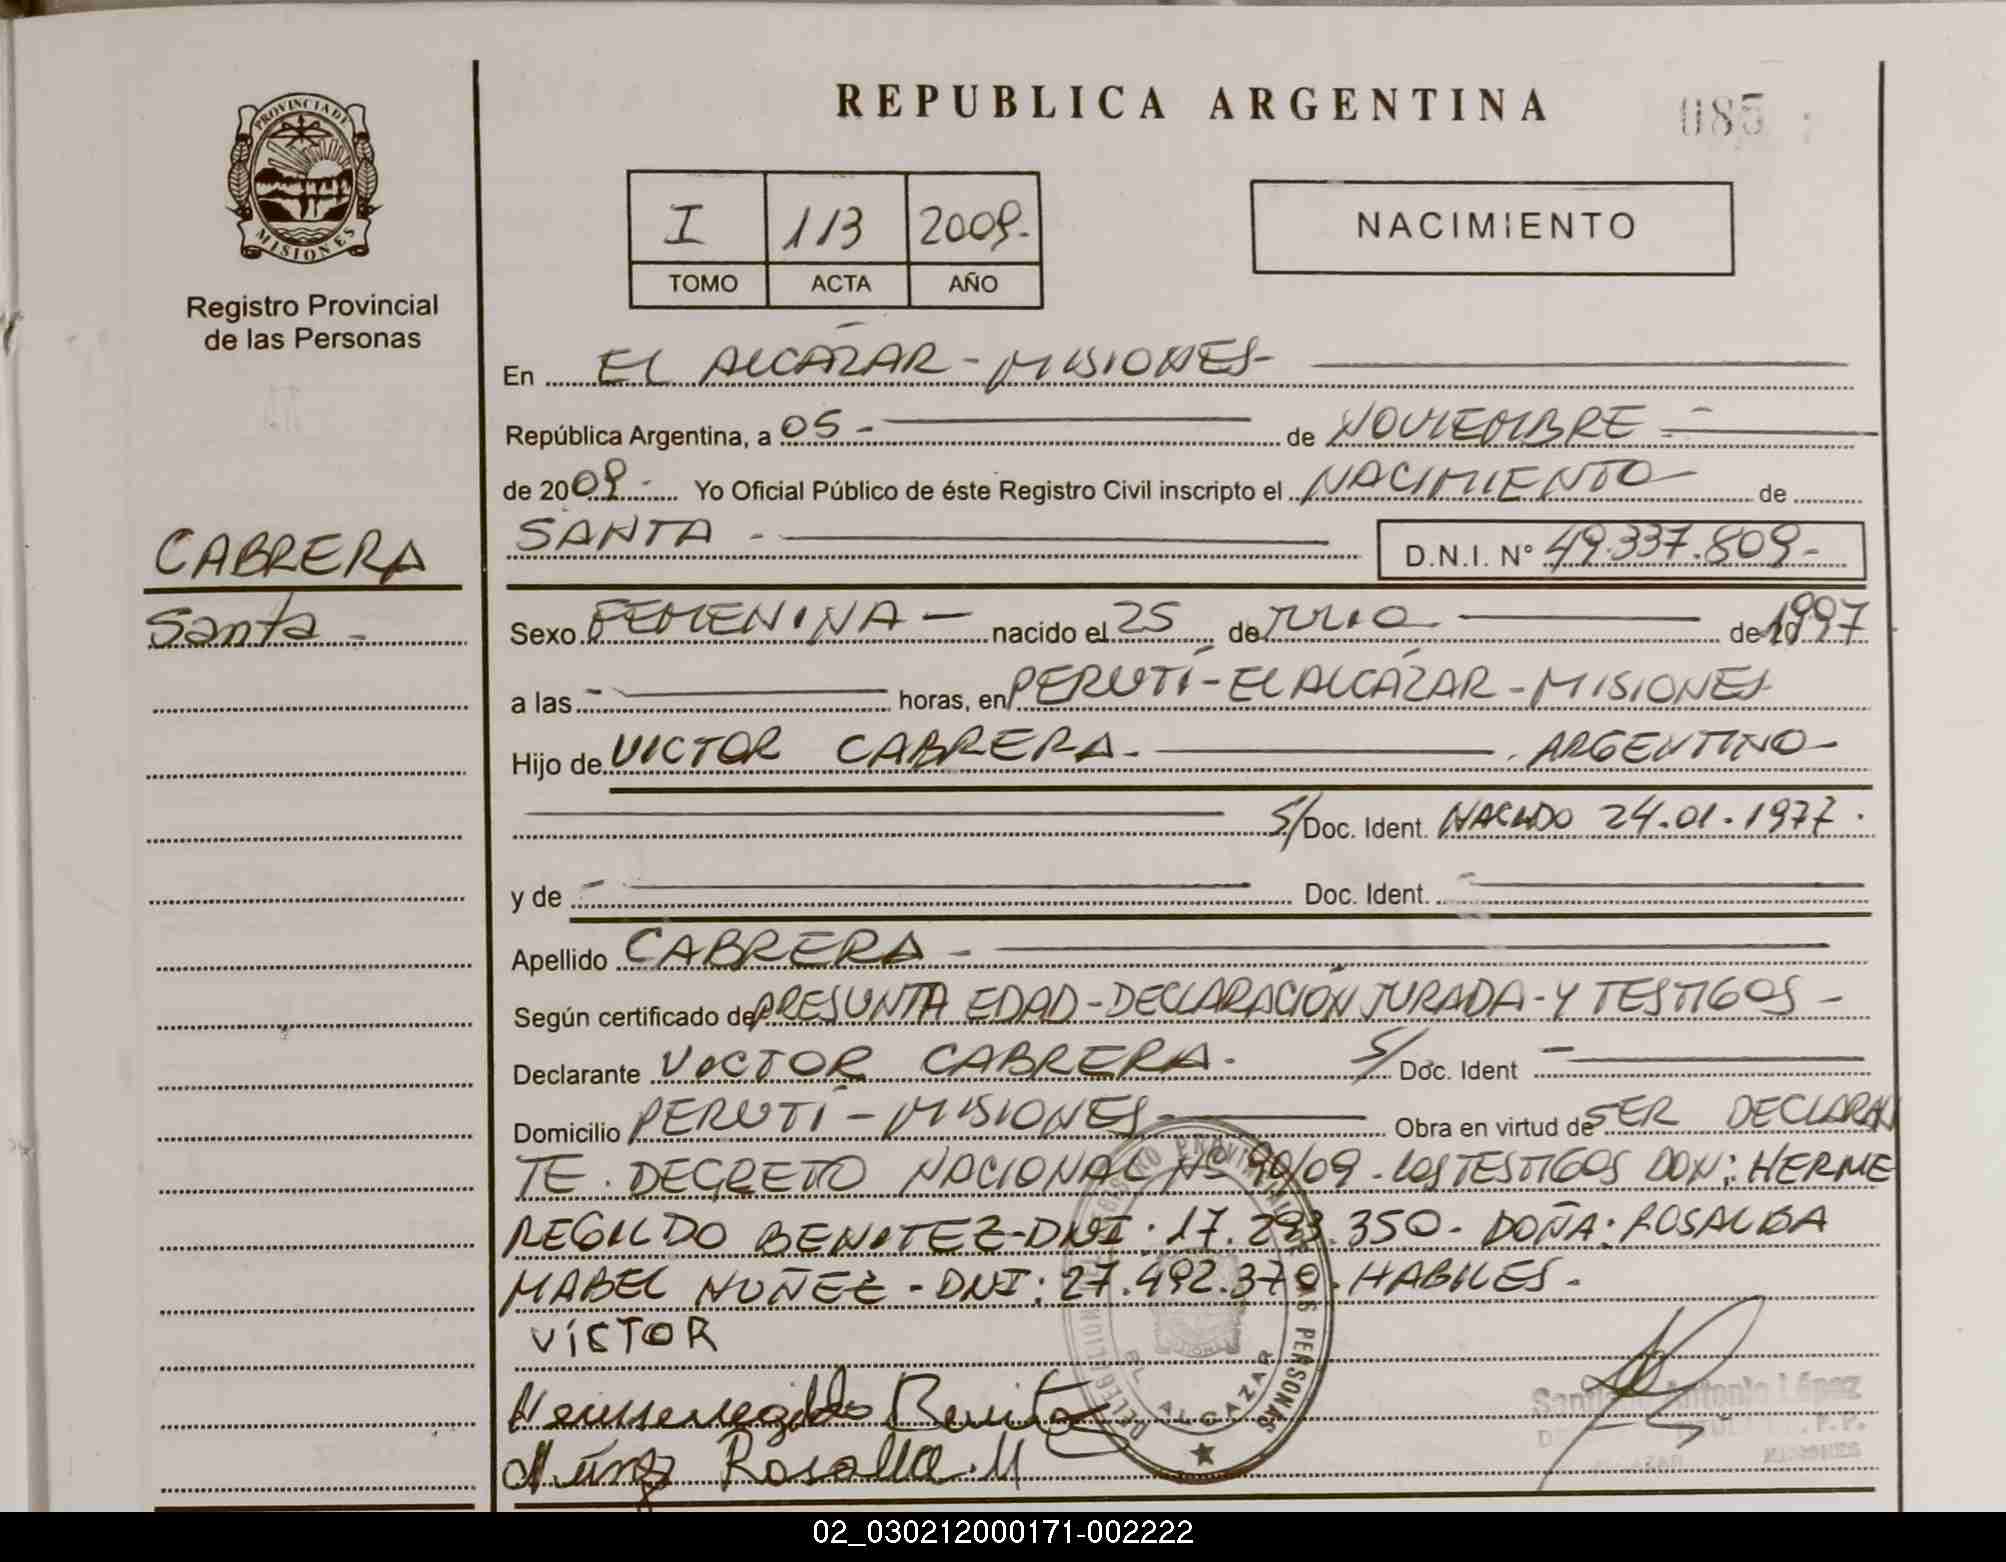 PROVINCIA DE
MISIONES
Registro Provincial
de las Personas
REPUBLICA ARGENTINA
085
I 113 2009.-
TOMO ACTA AÑO
NACIMIENTO
En EL ALCÁZAR - MISIONES-
República Argentina, a 05 - de NOVIEMBRE -
de 2009.- Yo Oficial Público de éste Registro Civil inscripto el NACIMIENTO de
SANTA - D.N.I. N° 49.337.809-
CABRERA
Santa -
Sexo FEMENINA - nacido el 25 de JULIO - de 1997
a las - horas, en PERUTÍ - EL ALCÁZAR - MISIONES
Hijo de VICTOR CABRERA - . ARGENTINO -
S/ Doc. Ident. NACIDO 24.01.1977.
y de - Doc. Ident. -
Apellido CABRERA -
Según certificado de PRESUNTA EDAD - DECLARACIÓN JURADA - Y TESTIGOS -
Declarante VICTOR CABRERA - S/ Doc. Ident -
Domicilio PERUTÍ - MISIONES - Obra en virtud de SER DECLARAN
TE. DECRETO NACIONAL Nº 90/09 - LOS TESTIGOS DON: HERME
REGILDO BENITEZ - DNI: 17.293.350 - DOÑA: ROSALBA
MABEL NUÑEZ - DNI: 27.492.370. HABILES -
VíCTOR
Hermenegildo Benitez
Núñez Rosalba M
DELEGACION REGISTRO PROVINCIAL DE LAS PERSONAS
EL ALCAZAR
Antonio López
MISIONES
02_030212000171-002222